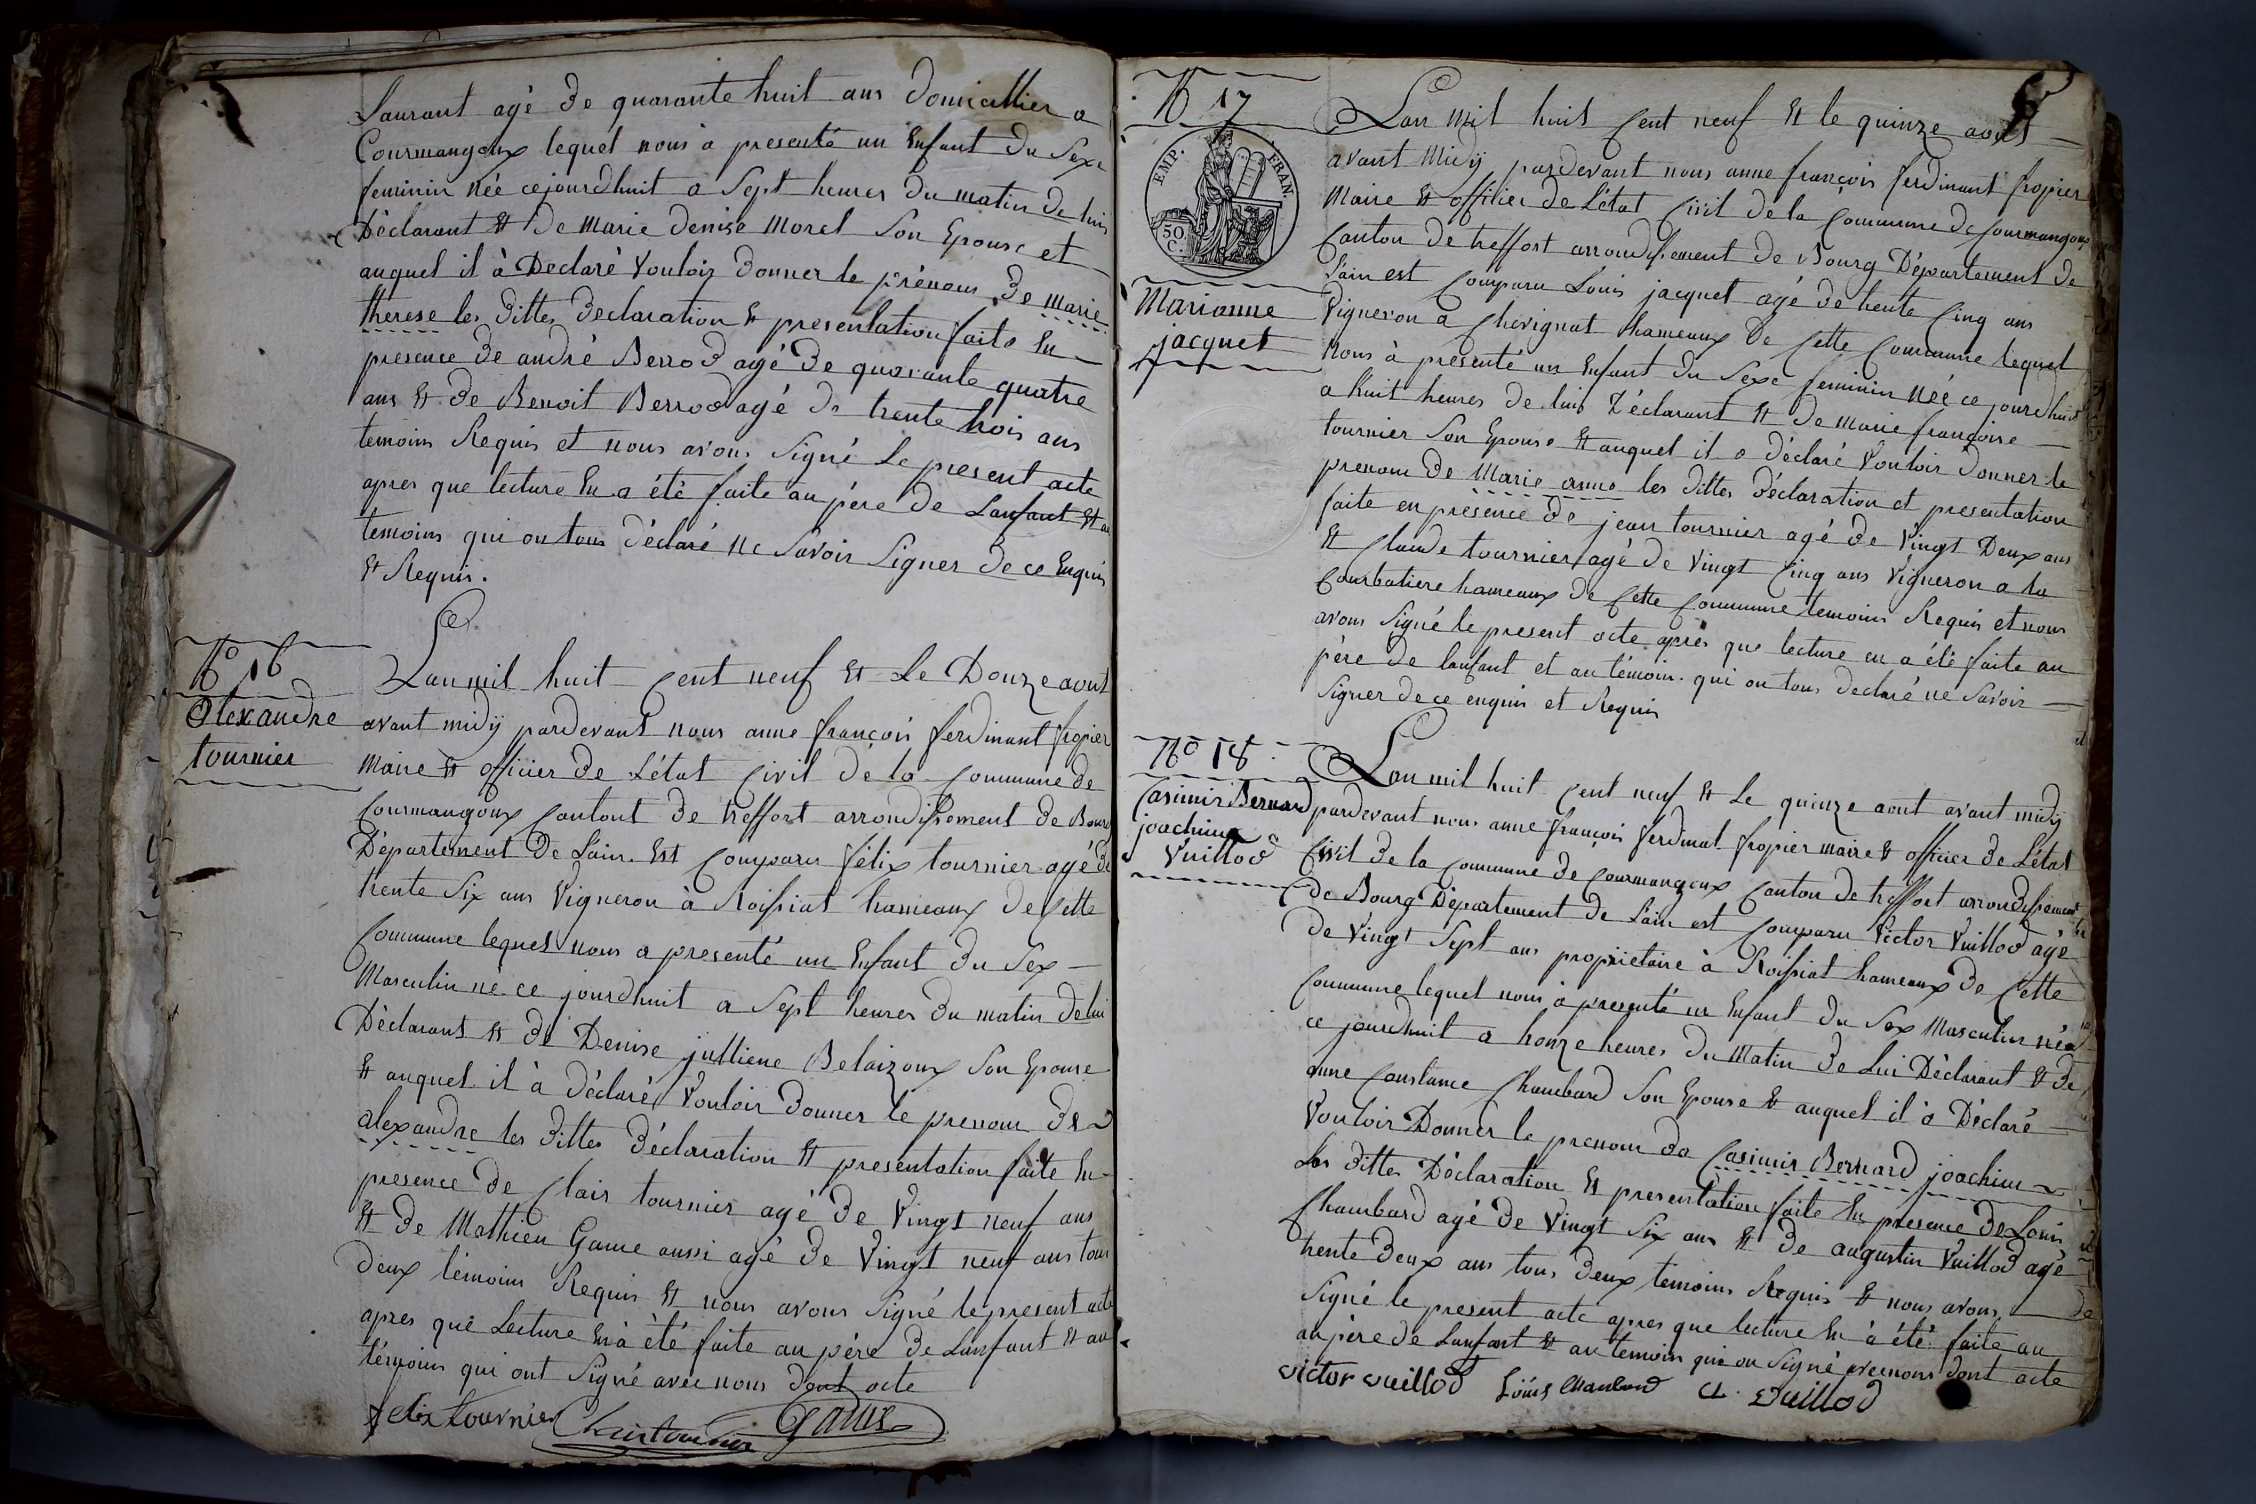 Laurant agé de quarante huit ans domicillier a
Courmangoux lequel nous à presenté un Enfant du Sexe
feminin née cejourdhuit a Sept heures du matin de luis
Déclarant Et de Marie denise Morel Son Epouse et
auquel il à Declaré Vouloir donner le prénom de Marie
therese les dittes declaration Et presentation faite En
presence de andré Berrod agé de quarante quatre
ans Et de Benoit Berrod agé de trente trois ans
temoins Requis et nous avons Signé Le present acte
apres que lecture En a été faite au père de Lanfant Et au
temoins qui on tous déclaré ne Savoir Signer de ce Enquis
Et Requis.
No 16
Alexandre
tournier
Lan mil huit Cent neuf Et Le Douze aout
avant midÿ pardevant nous anne françois ferdinant fropier
Maire Et officier de L'état Civil de la Commune de
Courmangoux Cantont de treffort arrondissement de Bourg
Département de Lain. Est Comparu félix tournier agé de
trente Six ans Vigneron à Roissiat hameaux de Cette
Commune lequel nous a presenté un Enfant du Sex
Masculin né ce jourdhuit a Sept heures du matin de lui
Déclarant Et de Denise jullienne Belaizoux Son Epouse
Et auquel il à déclaré Vouloir donner le prenom de
alexandre les dittes déclaration Et presentation faite En
presence de Clair tournier agé de Vingt neuf ans
Et de Mathieu Game aussi agé de Vingt neuf ans tous
deux témoins Requis Et nous avons Signé le present acte
apres que Lecture En à été faite au père de Lanfant Et au
témoins qui ont Signé avec nous dont acte
felix tournier Clair tournier Game
No 17
EMP. FRAN.
50 C.
Marianne
jacquet
Lan Mil huit Cent neuf Et le quinze aout
avant Midÿ pardevant nous anne françois ferdinant fropier
Maire Et officier de L'état Civil de la Commune de Courmangoux
Canton de treffort arrondissement de Bourg Département de
Lain est Comparu Louis jacquet agé de trente Cinq ans
Vigneron a Chevignat hameaux de Cette Commune lequel
Nous à presenté un Enfant du Sexe feminin née ce jourdhuit
a huit heures de luis Déclarant Et de Marie françoise
tournier Son Epouse Et auquel il a déclaré Vouloir donner le
prenom de Marie anne les dittes déclaration et presentation
faite en présence de jean tournier agé de Vingt Deux ans
Et Claude tournier agé de Vingt Cinq ans Vigneron a la
Courbatiere hameaux de Cette Commune temoins Requis et nous
avons Signé le present acte après que lecture en a été faite au
père de lanfant et au témoin. qui on tous declaré ne Savoir
Signer de ce enquis et Requis
No 18
Casimir Bernard
joachim
Vuillod
Lan mil huit Cent neuf Et Le quinze aout avant midÿ
pardevant nous anne françois ferdinat fropier maire Et officier de L'état
Civil de la Commune de Courmangoux Canton de treffort arrondissement
de Bourg Département de Lain est Comparu Victor Vuillod agé
de Vingt Sept ans propriétaire à Roissiat hameaux de Cette
Commune lequel nous à presenté un Enfant du Sex Masculin né
ce jourdhuit a honze heures du Matin de Lui Déclarant Et de
anne Constance Chambard Son Epouse Et auquel il à Déclaré
Vouloir Donner le prenom de Casimir Bernard joachim
Les dittes Déclaration Et presentation faite En presence de Louis
Chambard agé de Vingt Six ans Et de augustin Vuillod agé
trente deux ans tous deux temoins Requis Et nous avons
Signé le present acte apres que lecture En à été faite au
au père de Lanfant Et au temoin qui on Signé avec nous dont acte
victor vuillod Loüis Chambard a. vuillod